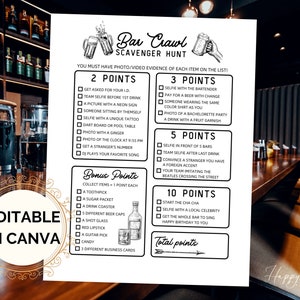 Bar Crawl
SCAVENGER HUNT
YOU MUST HAVE PHOTO/VIDEO EVIDENCE OF EACH ITEM ON THE LIST!
2 POINTS
GET ASKED FOR YOUR I.D.
TEAM SELFIE BEFORE 1ST DRINK
A PICTURE WITH A NEON SIGN
SOMEONE SITTING BY THEMSELF
SELFIE WITH A UNIQUE TATTOO
DART BOARD OR POOL TABLE
PHOTO WITH A GINGER
PHOTO OF THE CLOCK AT 9:55 PM
GET A STRANGER'S NUMBER
DJ PLAYS YOUR FAVORITE SONG
3 POINTS
SELFIE WITH THE BARTENDER
PAY FOR A BEER WITH CHANGE
SOMEONE WEARING THE SAME
COLOR SHIRT AS YOU
PHOTO OF A BACHELORETTE PARTY
A DRINK WITH A FRUIT GARNISH
5 POINTS
SELFIE IN FRONT OF 5 BARS
TEAM SELFIE AFTER LAST DRINK
CONVINCE A STRANGER YOU HAVE
A FOREIGN ACCENT
YOUR TEAM IMITATING THE
BEATLES CROSSING THE STREET
Bonus Points
COLLECT ITEMS = 1 POINT EACH
A TOOTHPICK
A SUGAR PACKET
A DRINK COASTER
3 DIFFERENT BEER CAPS
A SHOT GLASS
RED LIPSTICK
A GUITAR PICK
CANDY
3 DIFFERENT BUSINESS CARDS
10 POINTS
START THE CHA CHA
SELFIE WITH A LOCAL CELEBRITY
GET THE WHOLE BAR TO SING
HAPPY BIRTHDAY TO YOU
Total points:
EDITABLE
IN CANVA
Happy